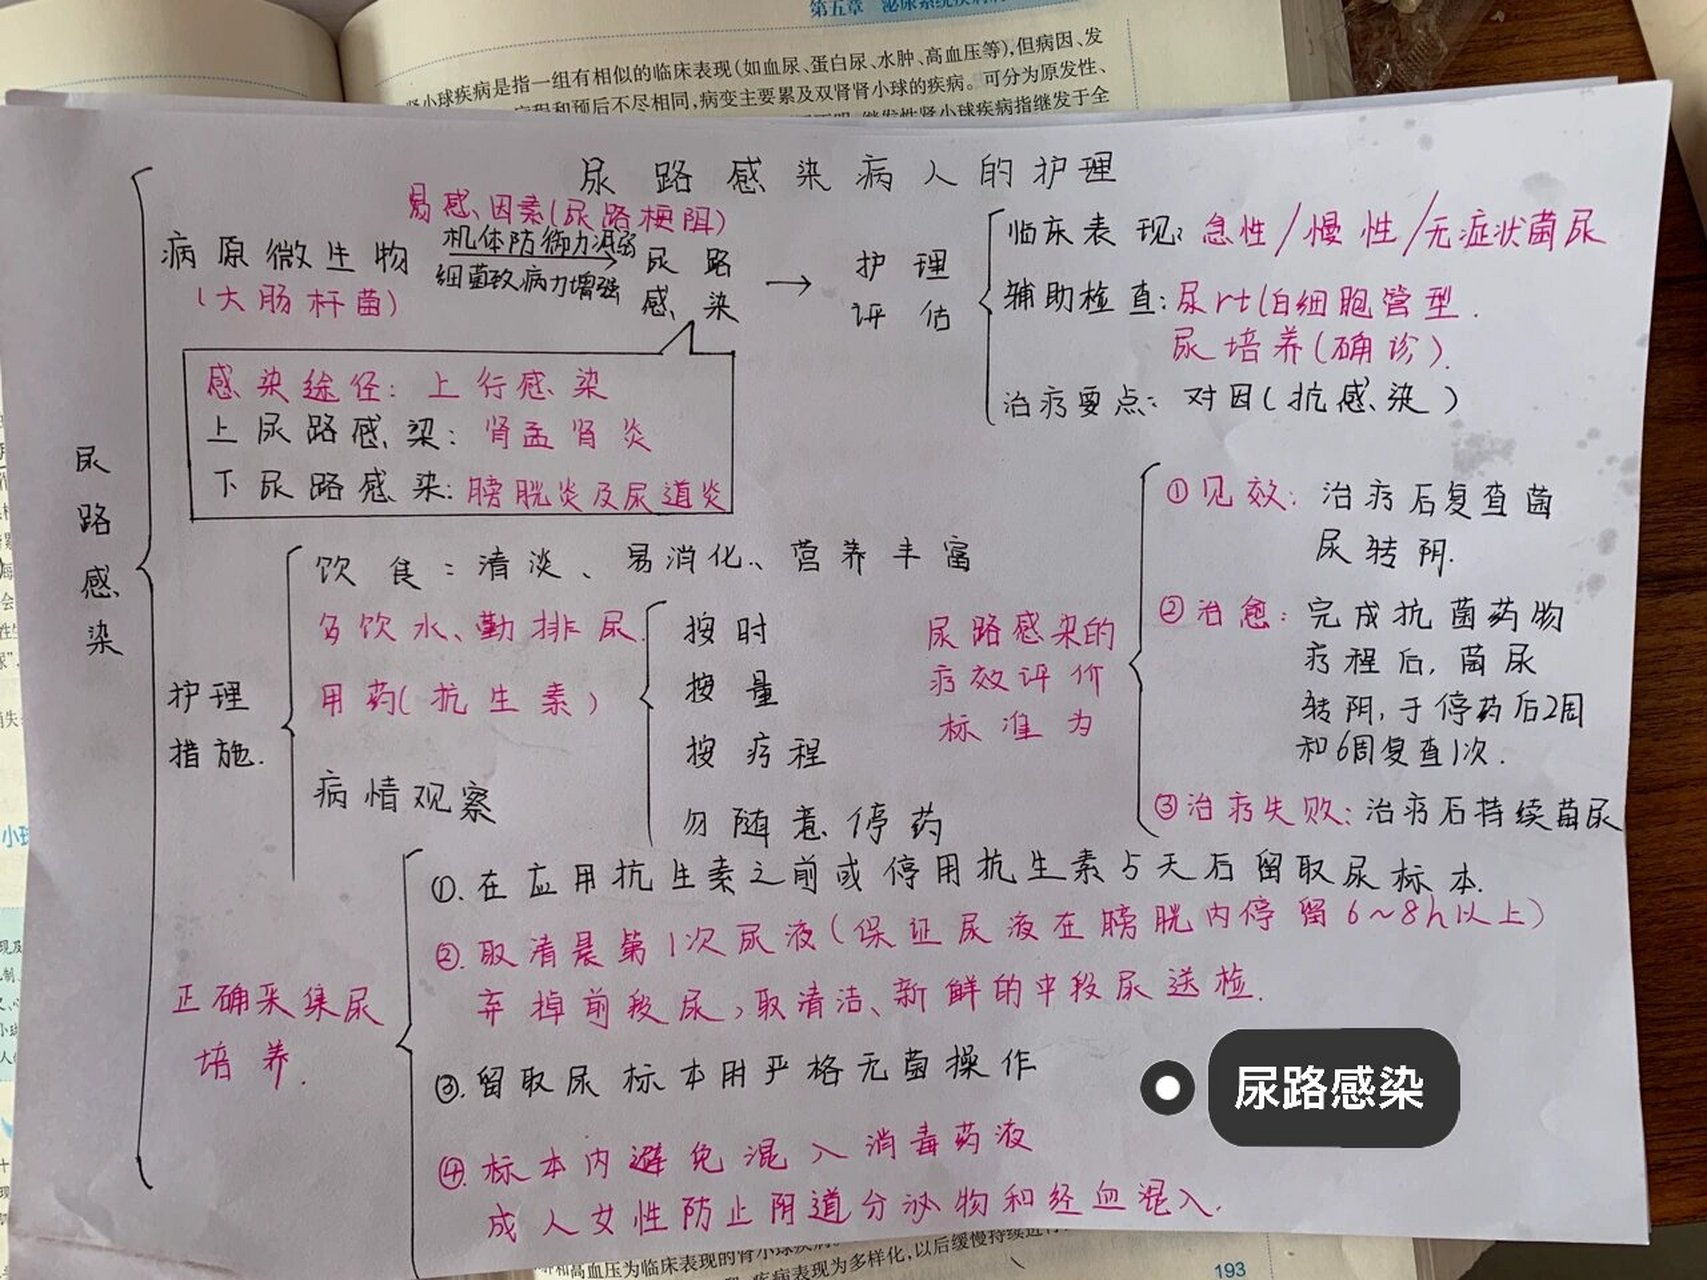 第五章
肾小球疾病是指一组有相似的临床表现(如血尿、蛋白尿、水肿、高血压等),但病因、发
病程和预后不尽相同,病变主要累及双肾肾小球的疾病。可分为原发性、
继发性肾小球疾病指继发于全
尿路感染病人的护理
尿路感染
易感因素(尿路梗阻)
病原微生物
(大肠杆菌)
机体防御力减弱
细菌致病力增强
尿路
感染
→
护理
评估
临床表现:急性/慢性/无症状菌尿
辅助检查:尿rt(白细胞管型.
尿培养(确诊).
治疗要点:对因(抗感染)
感染途径:上行感染
上尿路感染:肾盂肾炎
下尿路感染:膀胱炎及尿道炎
护理
措施.
饮食:清淡、易消化、营养丰富
多饮水、勤排尿.
用药(抗生素)
病情观察
按时
按量
按疗程
勿随意停药
尿路感染的
疗效评价
标准为
①见效:治疗后复查菌
尿转阴.
②治愈:完成抗菌药物
疗程后,菌尿
转阴,于停药后2周
和6周复查1次.
③治疗失败:治疗后持续菌尿
正确采集尿
培养.
①.在应用抗生素之前或停用抗生素5天后留取尿标本.
②.取清晨第1次尿液(保证尿液在膀胱内停留6~8h以上)
弃掉前段尿,取清洁、新鲜的中段尿送检.
③.留取尿标本时严格无菌操作
④.标本内避免混入消毒药液
成人女性防止阴道分泌物和经血混入.
尿路感染
和高血压为临床表现的肾小球疾病
疾病表现为多样化,以后缓慢持续进行
193